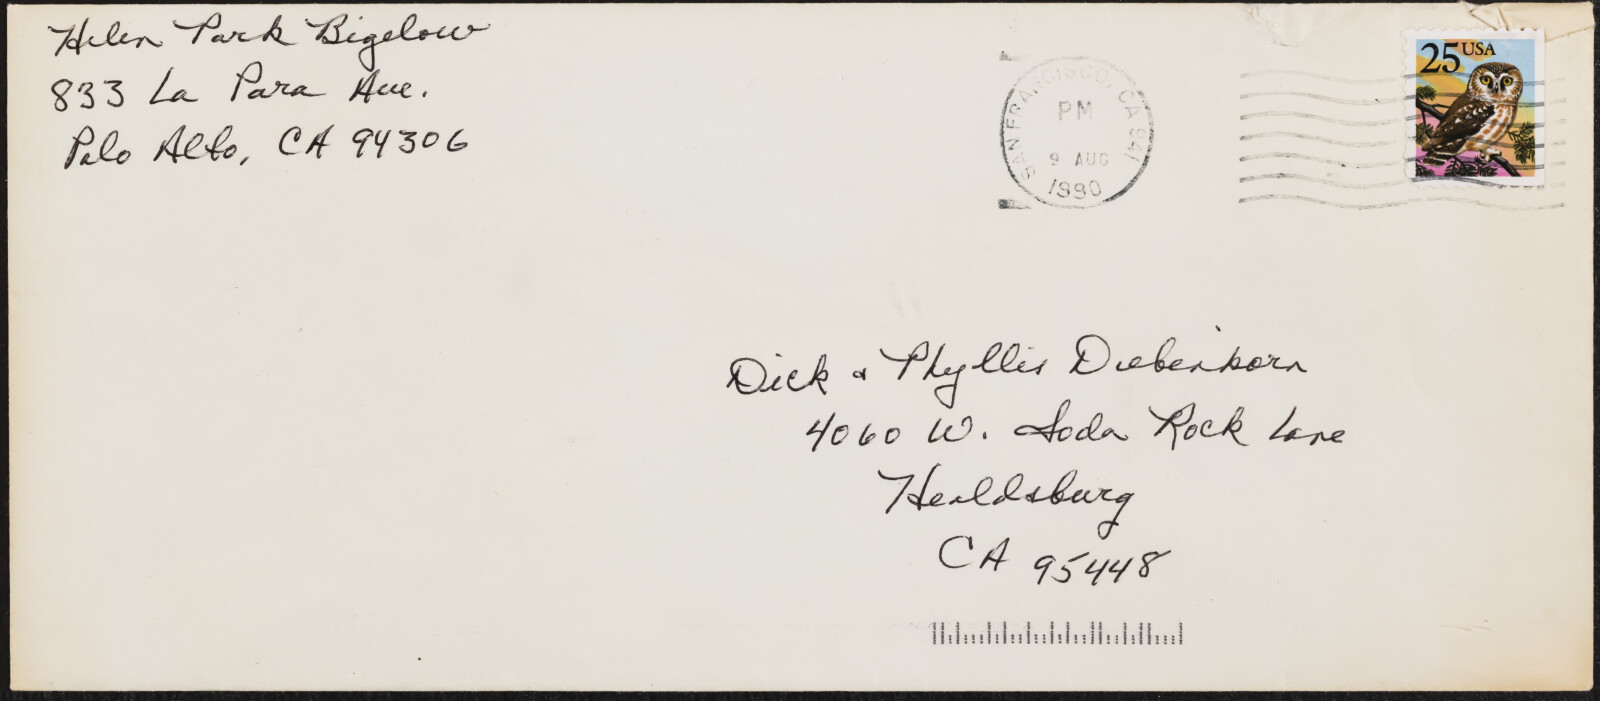 Helen Park Bigelow
833 La Para Ave.
Palo Alto, CA 94306
SAN FRANCISCO, CA 941
PM
9 AUG
1990
25 USA
Dick & Phyllis Diebenkorn
4060 W. Soda Rock Lane
Healdsburg
CA 95448